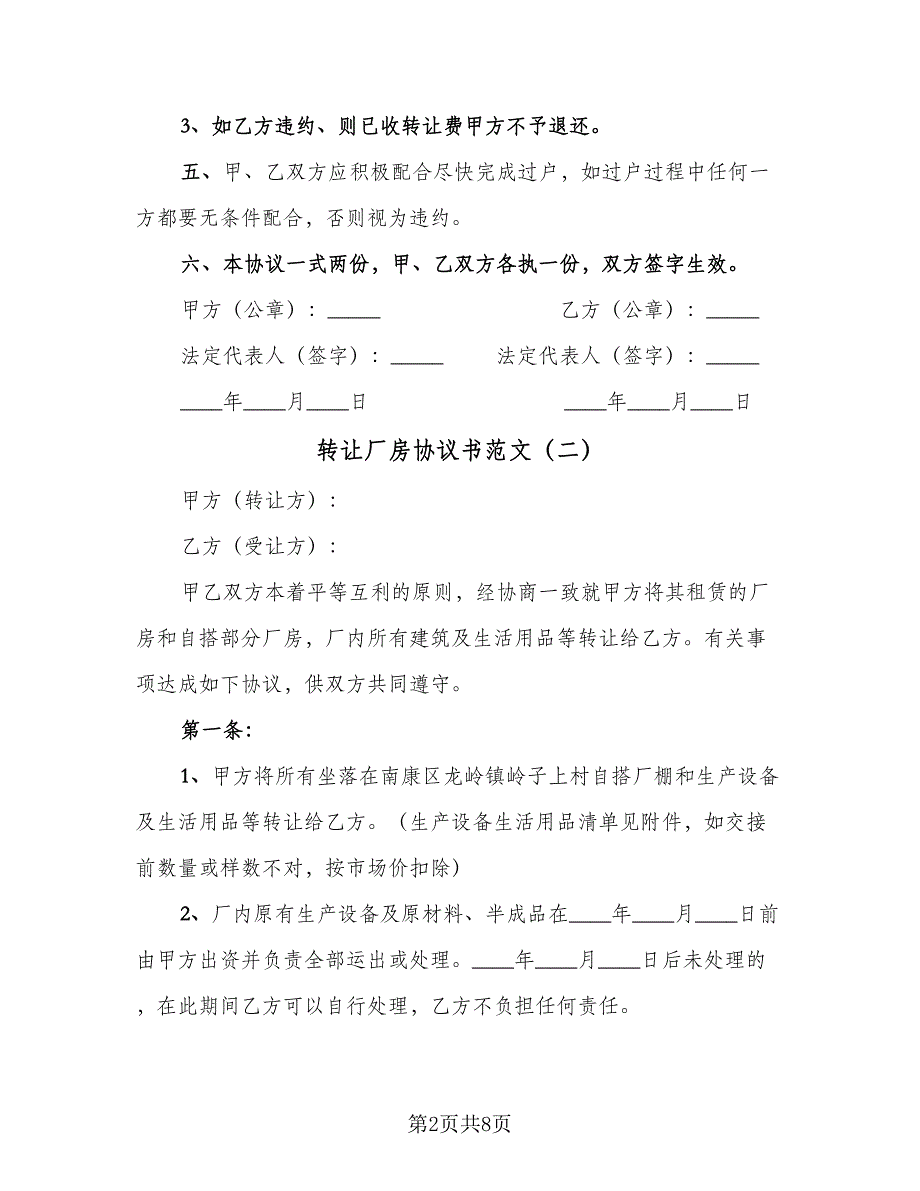 3、如乙方违约、则已收转让费甲方不予退还。
五、甲、乙双方应积极配合尽快完成过户，如过户过程中任何一
方都要无条件配合，否则视为违约。
六、本协议一式两份，甲、乙双方各执一份，双方签字生效。
甲方（公章）：_____ 乙方（公章）：_____
法定代表人（签字）：_____ 法定代表人（签字）：_____
____年____月____日 ____年____月____日
转让厂房协议书范文（二）
甲方（转让方）：
乙方（受让方）：
甲乙双方本着平等互利的原则，经协商一致就甲方将其租赁的厂
房和自搭部分厂房，厂内所有建筑及生活用品等转让给乙方。有关事
项达成如下协议，供双方共同遵守。
第一条：
1、甲方将所有坐落在南康区龙岭镇岭子上村自搭厂棚和生产设备
及生活用品等转让给乙方。（生产设备生活用品清单见附件，如交接
前数量或样数不对，按市场价扣除）
2、厂内原有生产设备及原材料、半成品在____年____月____日前
由甲方出资并负责全部运出或处理。____年____月____日后未处理的
，在此期间乙方可以自行处理，乙方不负担任何责任。
第2页共8页